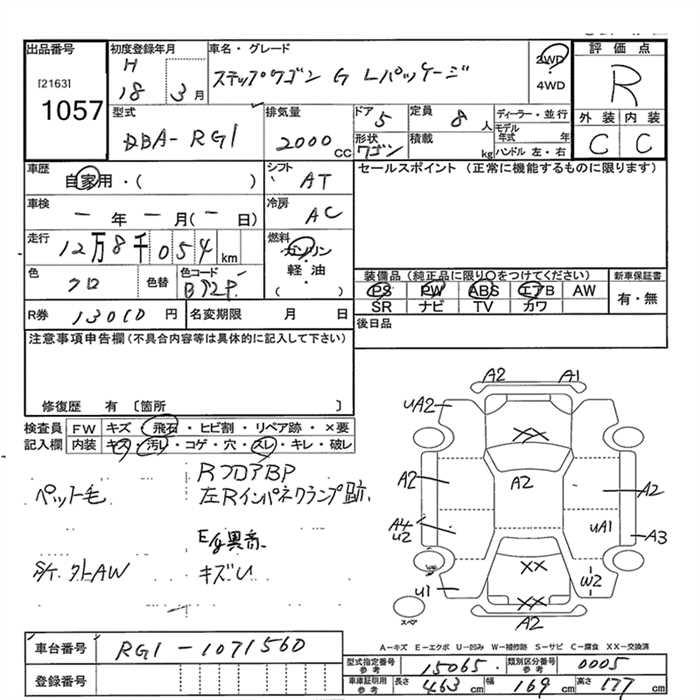 出品番号
[2163]
1057
初度登録年月
H
18 3月
車名・グレード
ステップワゴン G Lパッケージ
2WD
4WD
評価点
R
外装 内装
C C
型式
DBA-RG1
排気量
2000 cc
ドア 5
形状 ワゴン
定員 8 人
積載 kg
ディーラー・並行
モデル年式 年
ハンドル 左・右
車歴
自家用・( )
シフト
AT
車検
一年 一月(一日)
冷房
AC
走行
12万8千054km
燃料
ガソリン
軽油
( )
色
クロ
色替
色コード
B92P
R券 13010円
名変期限 月 日
セールスポイント(正常に機能するものに限ります)
装備品(純正品に限り○をつけてください)
PS PW ABS エアB AW
SR ナビ TV カワ
新車保証書
有・無
後日品
注意事項申告欄(不具合内容等は具体的に記入して下さい)
修復歴 有〔箇所 〕
検査員記入欄
FW キズ・飛石・ヒビ割・リペア跡・×要
内装 キズ・汚れ・コゲ・穴・スレ・キレ・破レ
ペット毛
RフロアBP
左Rインパネクランプ跡
E/g異音
社外AW
キズU
A2 A1
UA2
XX
A2
A2
A2
A4
U2
UA1
A3
U1
XX
W2
XX
A2
スペア
A-キズ E-エクボ U-凹み W-補修跡 S-サビ C-腐食 XX-交換済
車台番号
RG1-1071560
登録番号
型式指定番号 参考 15065
類別区分番号 参考 0005
車庫証明用 参考 長さ 463cm 幅 169cm 高さ 177cm